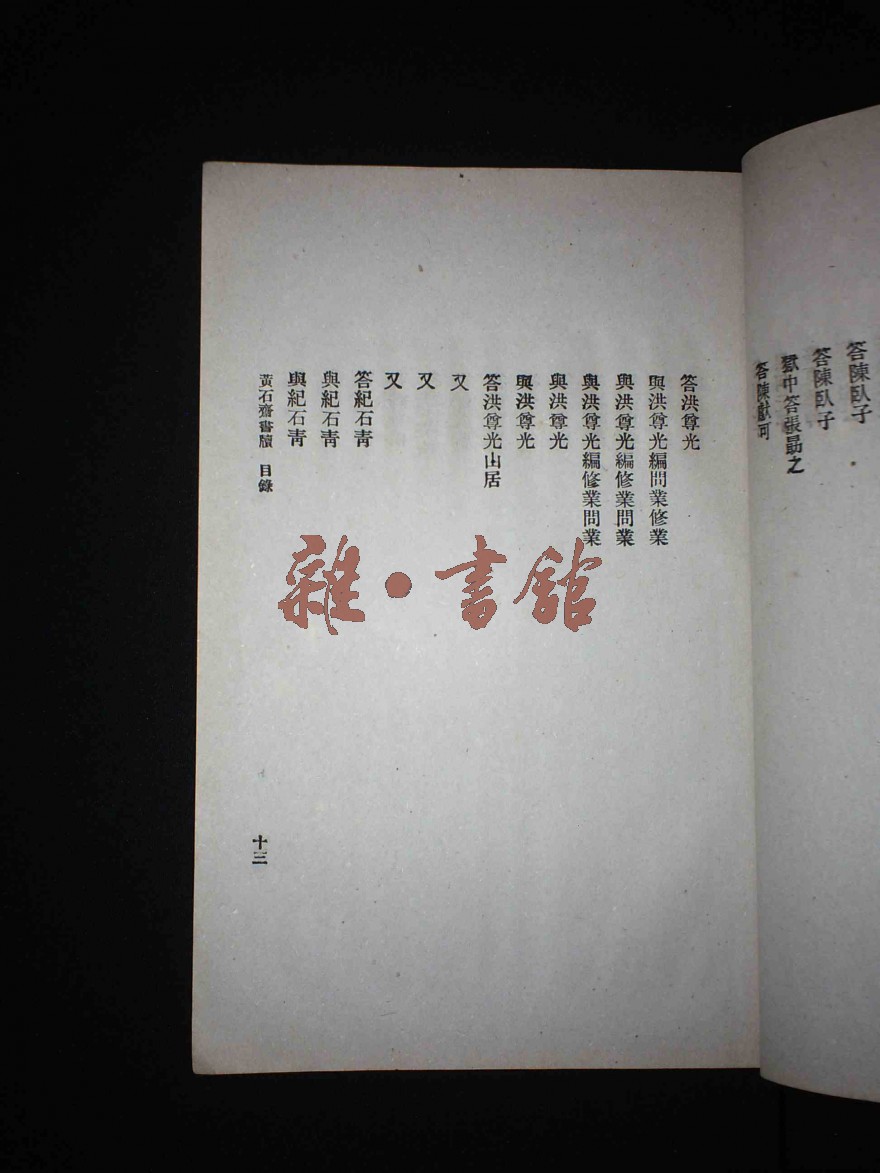 答陳臥子
答陳臥子
獄中答張勗之
答陳獻可
答洪尊光
與洪尊光編問業修業
與洪尊光編修業問業
與洪尊光編修業問業
與洪尊光
與洪尊光
答洪尊光山居
又
又
又
答紀石青
與紀石青
與紀石青
黃石齋書牘 目錄
十三
雜·書館